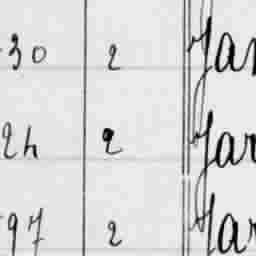 30 2 Jar
24 2 Jar
97 2 Jar